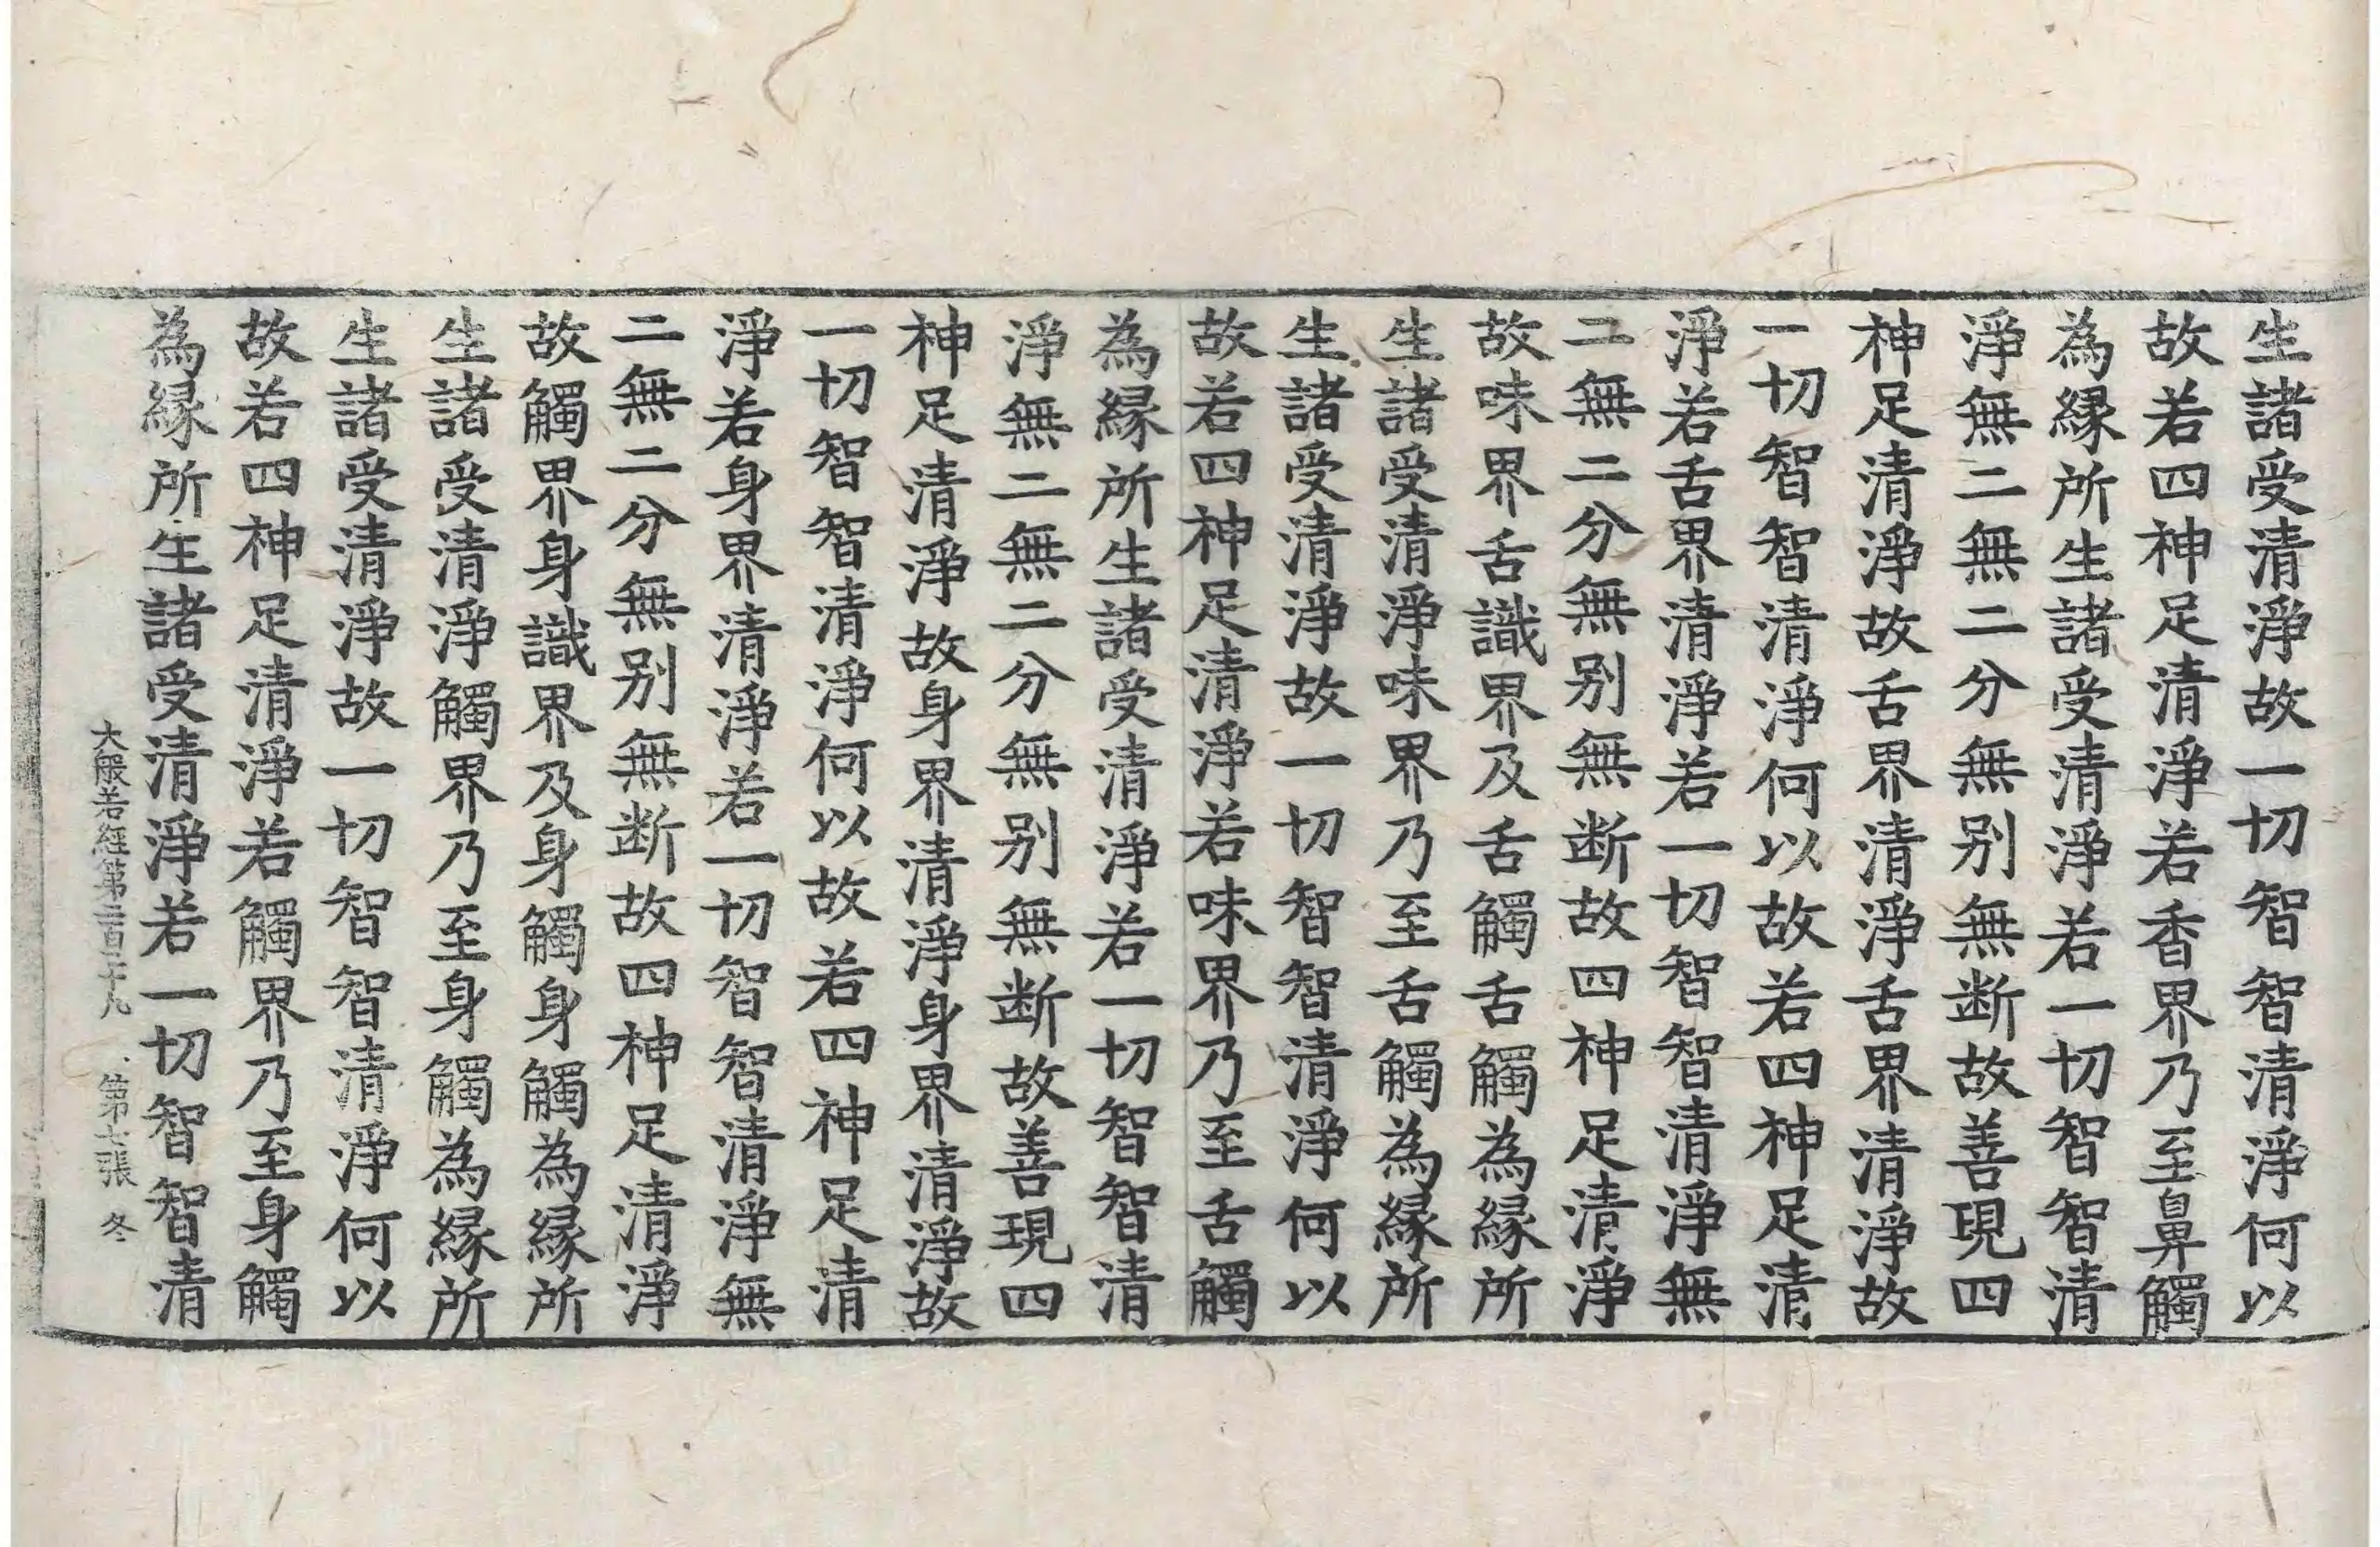 生諸受清淨故一切智智清淨何以
故若四神足清淨若香界乃至鼻觸
為緣所生諸受清淨若一切智智清
淨無二無二分無别無断故善現四
神足清淨故舌界清淨舌界清淨故
一切智智清淨何以故若四神足清
淨若舌界清淨若一切智智清淨無
二無二分無别無断故四神足清淨
故味界舌識界及舌觸舌觸為緣所
生諸受清淨味界乃至舌觸為緣所
生諸受清淨故一切智智清淨何以
故若四神足清淨若味界乃至舌觸
為緣所生諸受清淨若一切智智清
淨無二無二分無别無断故善現四
神足清淨故身界清淨身界清淨故
一切智智清淨何以故若四神足清
淨若身界清淨若一切智智清淨無
二無二分無别無断故四神足清淨
故觸界身識界及身觸身觸為緣所
生諸受清淨觸界乃至身觸為緣所
生諸受清淨故一切智智清淨何以
故若四神足清淨若觸界乃至身觸
為緣所生諸受清淨若一切智智清
大般若經第二百三十九 第七張 冬